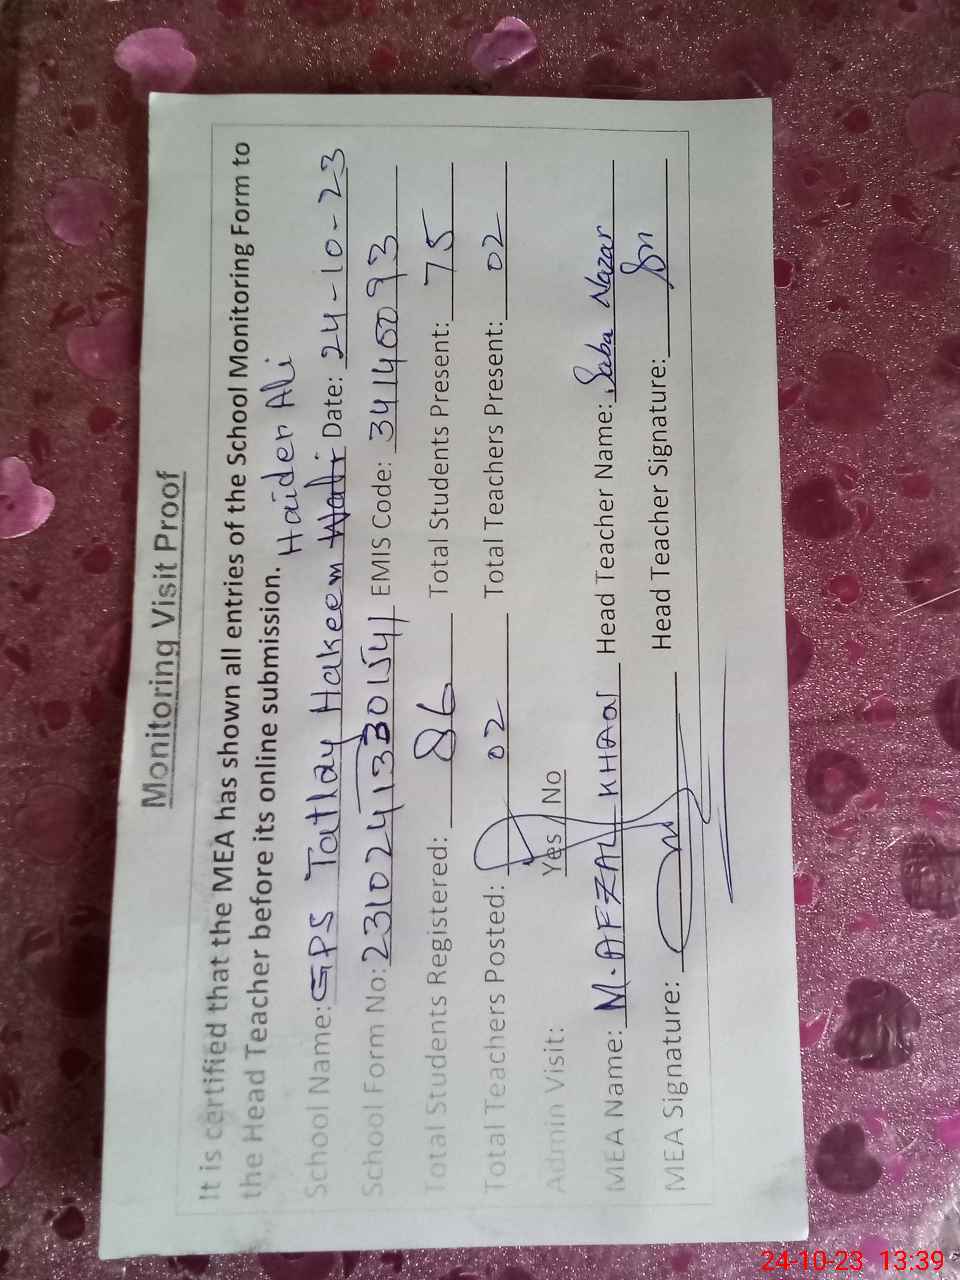 Monitoring Visit Proof
It is certified that the MEA has shown all entries of the School Monitoring Form to
the Head Teacher before its online submission.
Haider Ali
School Name: GPS Tatlay Hakeem Date: 24-10-23
School Form No: EMIS Code: 34140093
Total Students Registered: 86 Total Students Present: 75
Total Teachers Posted: 02 Total Teachers Present: 02
Admin Visit: Yes / No
MEA Name: M. AFZAL KHAN Head Teacher Name: Saba Nazar
MEA Signature: Head Teacher Signature:
24-10-23 13:39